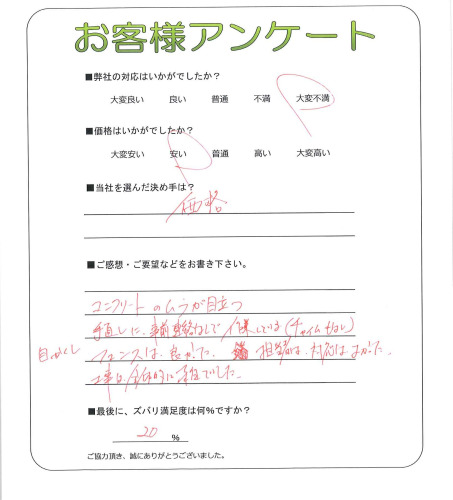 お客様アンケート
■弊社の対応はいかがでしたか?
大変良い 良い 普通 不満 大変不満
■価格はいかがでしたか?
大変安い 安い 普通 高い 大変高い
■当社を選んだ決め手は?
価格
■ご感想・ご要望などをお書き下さい。
コンクリートのムラが目立つ
手直しに、事前連絡なしで している(チャイムもなし)
目かくしフェンスは、良かった。 担当者は、対応はよかった。
工事は、全体的に でした。
■最後に、ズバリ満足度は何%ですか?
20 %
ご協力頂き、誠にありがとうございました。